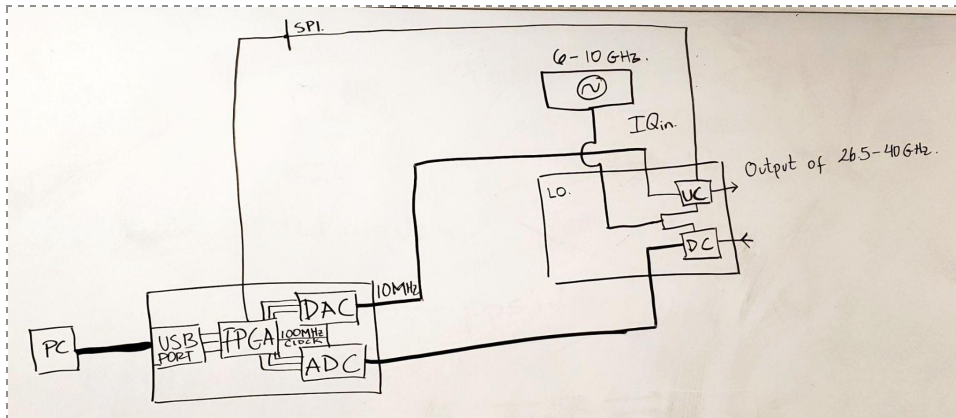 SPI.
6-10 GHz.
IQin.
Output of 26.5-40GHz.
LO.
UC
DC
10MHz
DAC
PC
USB
PORT
FPGA
100MHz
CLOCK
ADC